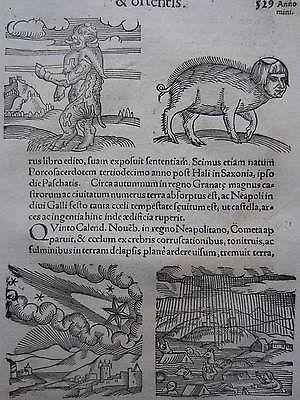 & oſtentis.
529 Anno
mini.
rus libro edito, ſuam expoſuit ſententiam. Scimus etiam natum
Porcoſacerdotem tertiodecimo anno poſt Hali in Saxonia, ipſo
die Paſchatis. Circa autumnum in regno Granatę magnus ca-
ſtrorum ac ciuitatum numerus terra abſorptus eſt, ac Neapoli in
diui Galli feſto tanta cœli tempeſtas ſecuta eſt, ut caſtella, ar-
ces ac ingentia hinc inde ædificia ruperit.
QVinto Calend. Nouẽb. in regno Neapolitano, Cometa ap-
paruit, & cœlum ex crebris corruſcationibus, tonitruis, ac
fulminibus in terram delapſis planè ardere uiſum, tremuit terra,